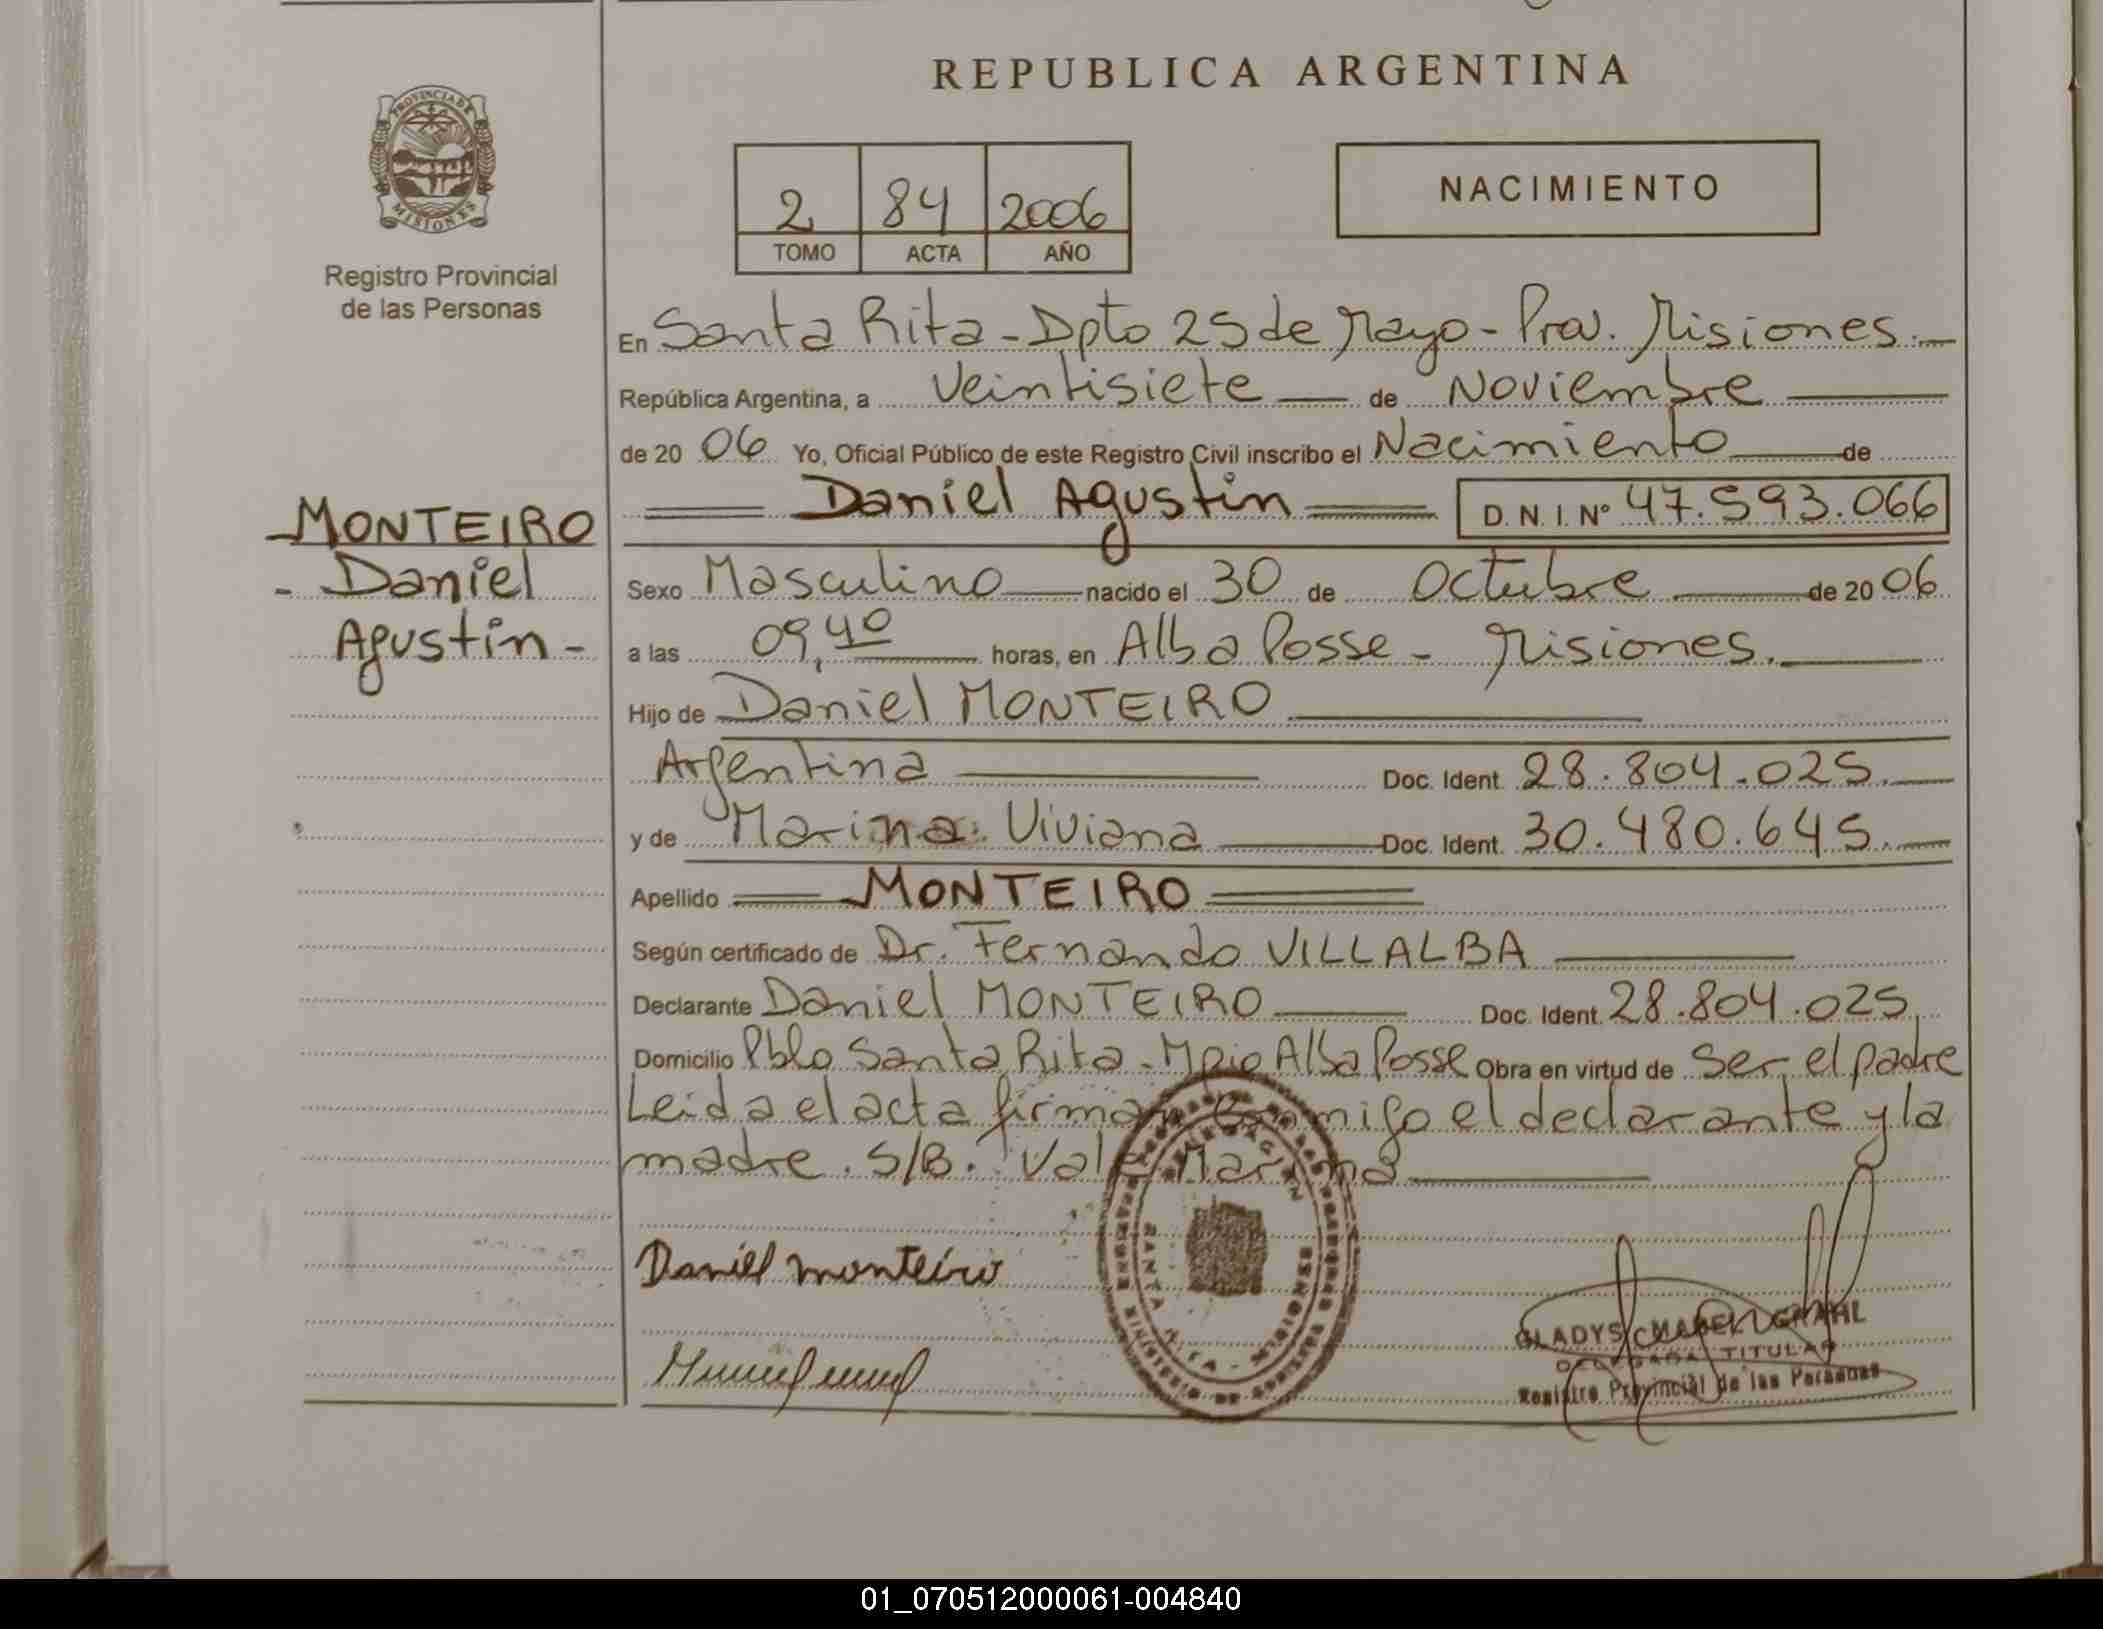 REPUBLICA ARGENTINA
PROVINCIA DE
MISIONES
Registro Provincial
de las Personas
2 84 2006
TOMO ACTA AÑO
NACIMIENTO
En Santa Rita - Dpto 25 de Mayo - Prov. Misiones.
República Argentina, a Veintisiete de Noviembre
de 2006 Yo, Oficial Público de este Registro Civil inscribo el Nacimiento de
Daniel Agustin D.N.I. Nº 47.593.066
MONTEIRO
- Daniel
Agustin -
Sexo Masculino nacido el 30 de Octubre de 2006
a las 09,40 horas, en Alba Posse - Misiones.
Hijo de Daniel MONTEIRO
Argentina Doc. Ident. 28.804.025.
y de Marina Viviana Doc. Ident. 30.480.645.
Apellido MONTEIRO
Según certificado de Dr. Fernando VILLALBA
Declarante Daniel MONTEIRO Doc. Ident. 28.804.025
Domicilio Pblo Santa Rita - Mpio Alba Posse Obra en virtud de Ser el padre
Leida el acta firman conmigo el declarante y la
madre. S/B. Vale Marina
Daniel monteiro
SANTA RITA - MISIONES
GLADYS MABEL GRAHL
DELEGADA TITULAR
Registro Provincial de las Personas
01_070512000061-004840